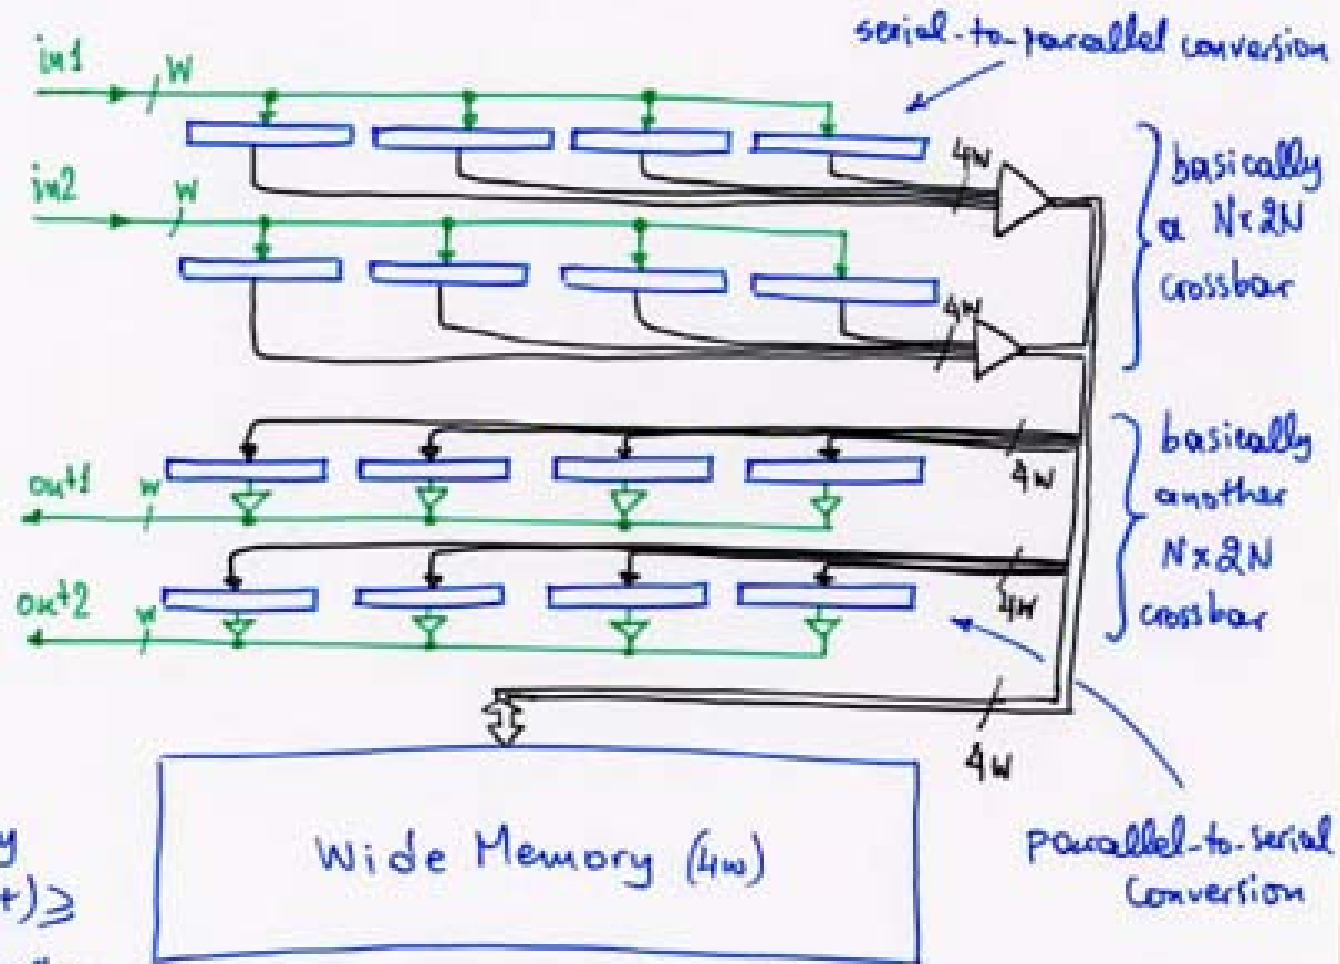 serial-to-parallel conversion
in1
w
4w
basically
a N×2N
crossbar
in2
w
4w
out1
w
4w
basically
another
N×2N
crossbar
out2
w
4w
4w
Wide Memory (4w)
parallel-to-serial
conversion
y
t) ≥